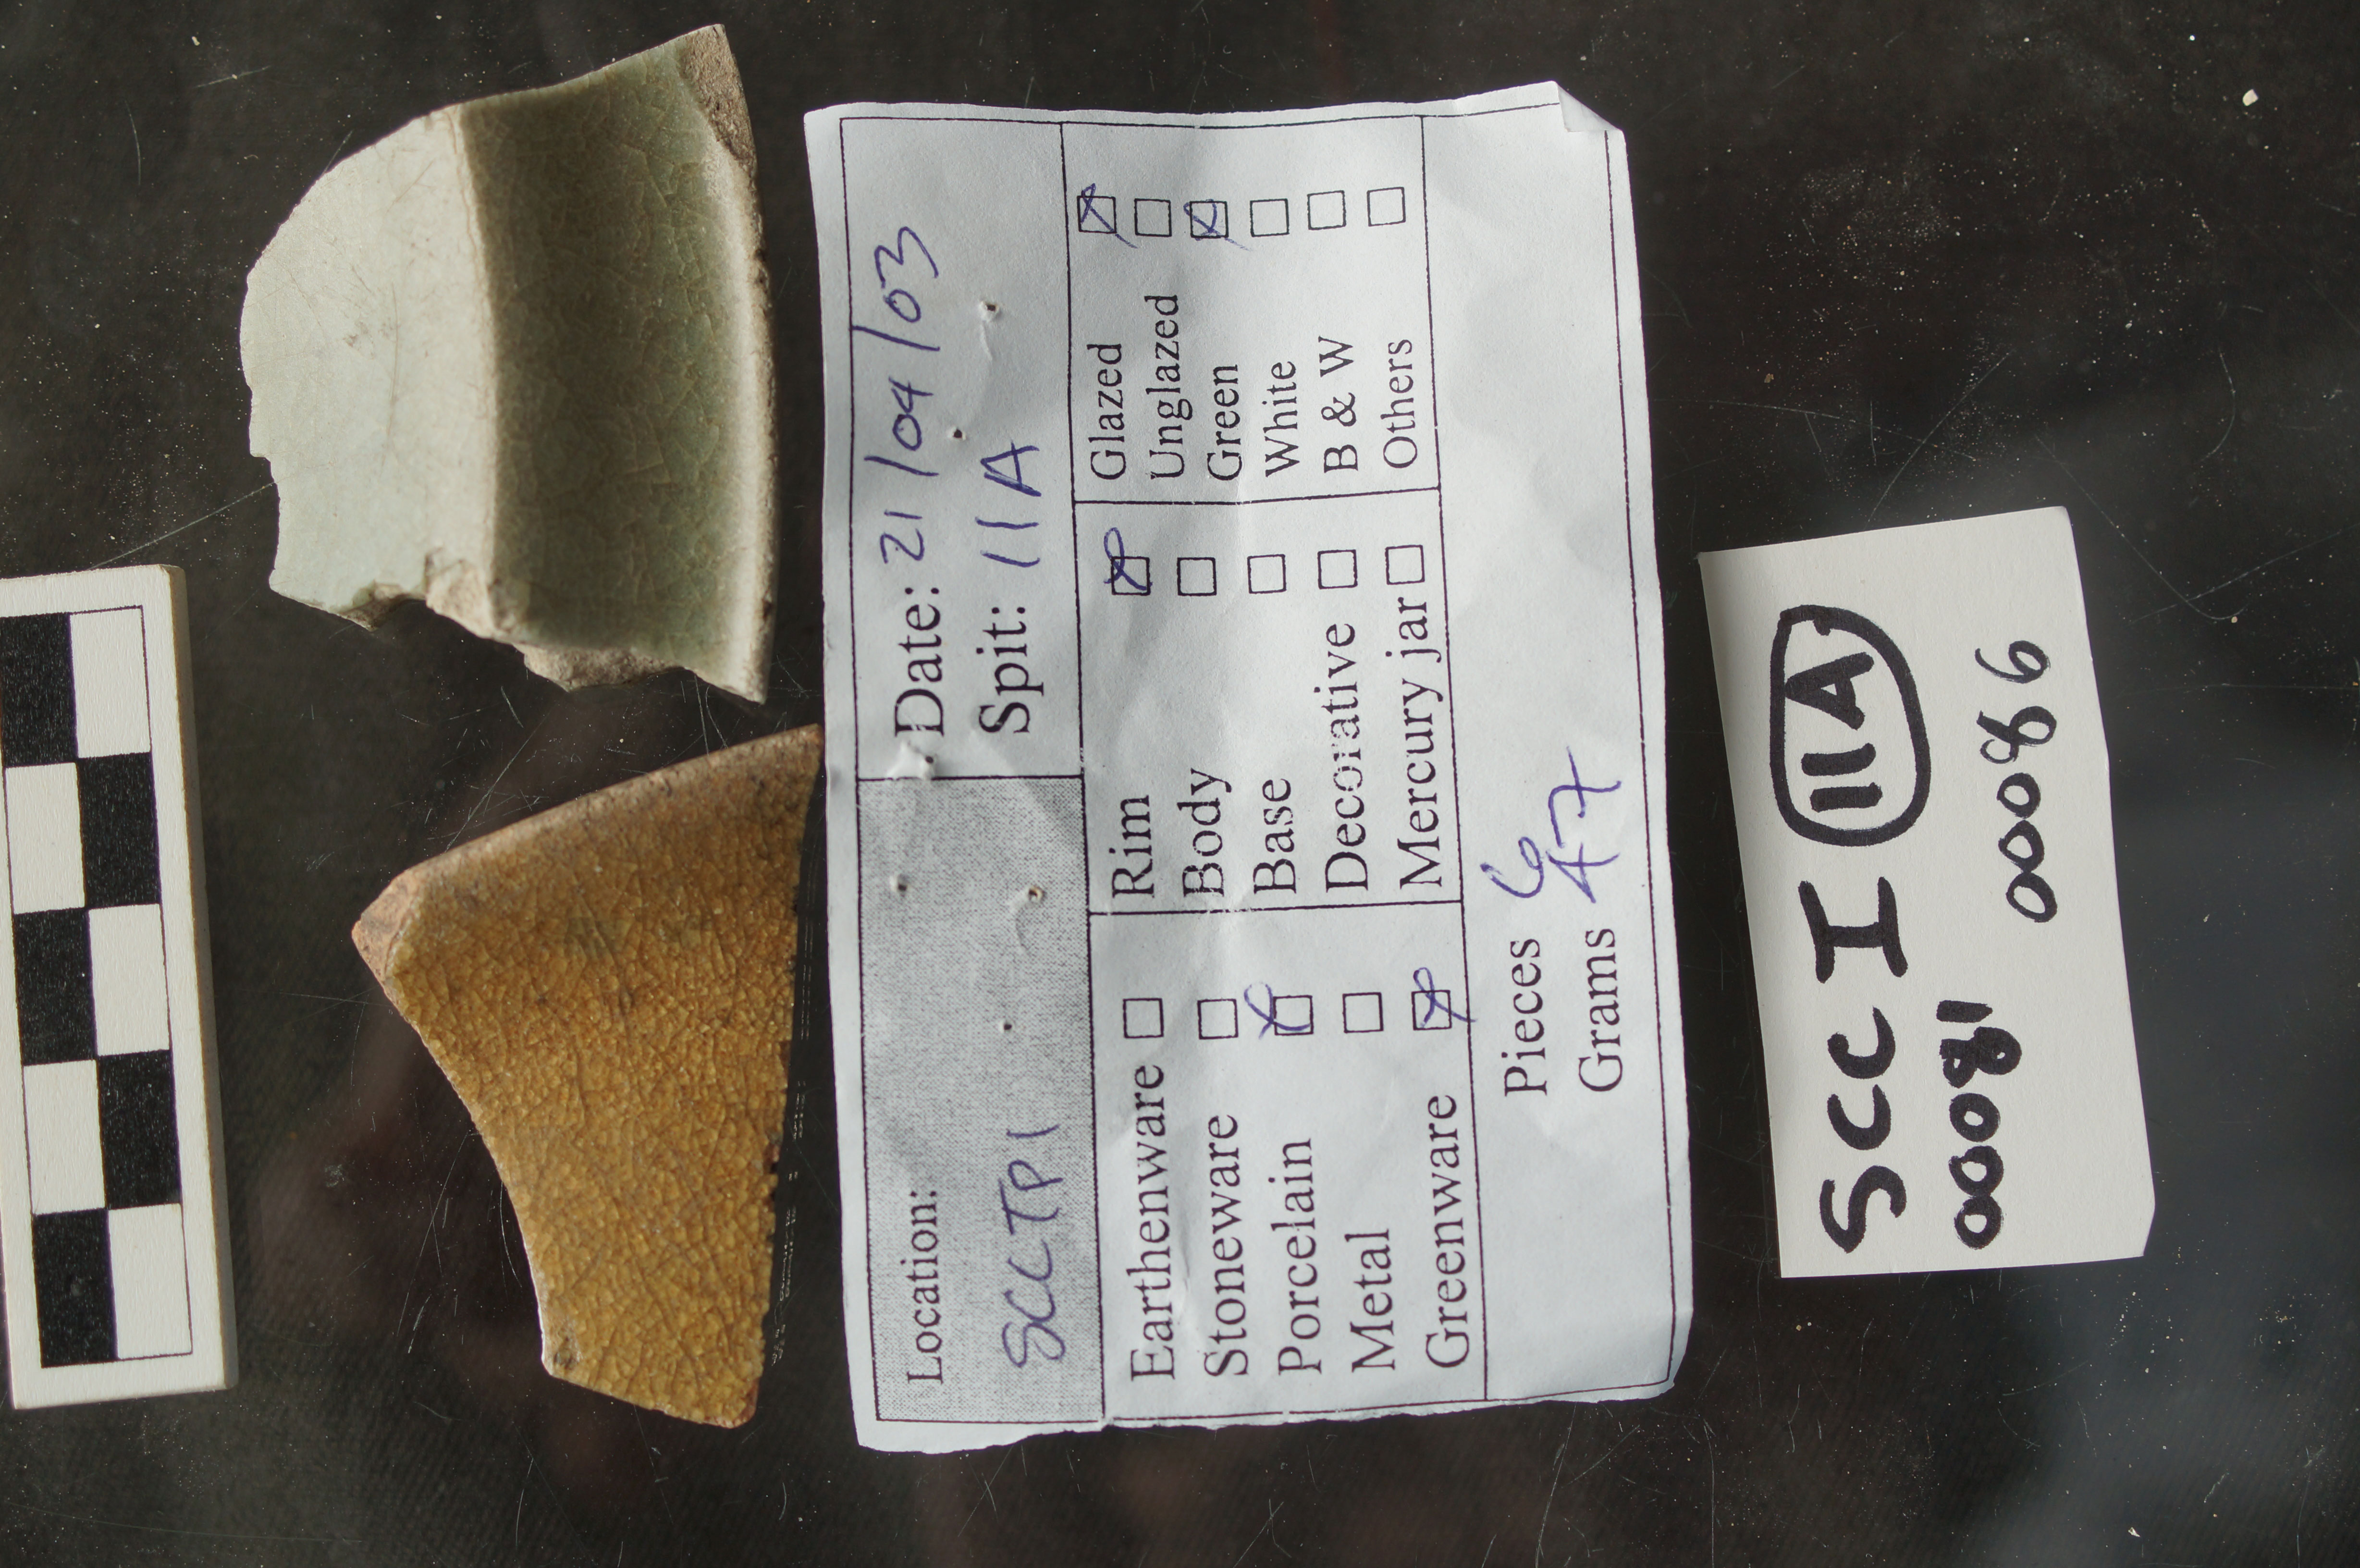 Location:
SCCTP1
Date: 21/04/03
Spit: 11A
Earthenware
Stoneware
Porcelain
Metal
Greenware
Rim
Body
Base
Decorative
Mercury jar
Glazed
Unglazed
Green
White
B & W
Others
Pieces 6
Grams 47
SCC I 11A
00081 00086